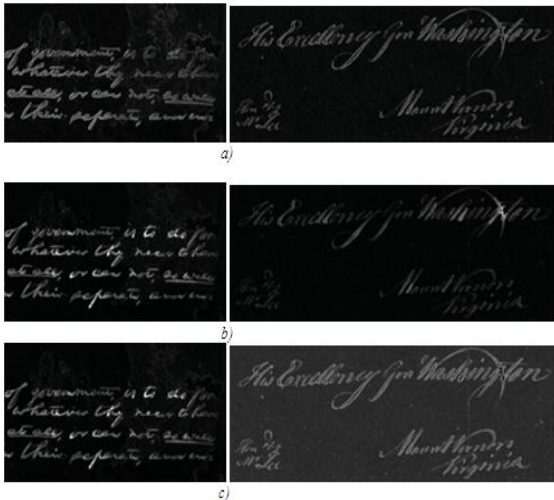 of government, is to do for
whatever thy need to have
at all, or can not, so well
n their separate, and in
His Excellency Gen Washington
Mount Vernon
Virginia
a)
of government, is to do for
whatever thy need to have
at all, or can not, so well
n their separate, and in
His Excellency Gen Washington
Mount Vernon
Virginia
b)
of government, is to do for
whatever thy need to have
at all, or can not, so well
n their separate, and in
His Excellency Gen Washington
Mount Vernon
Virginia
c)